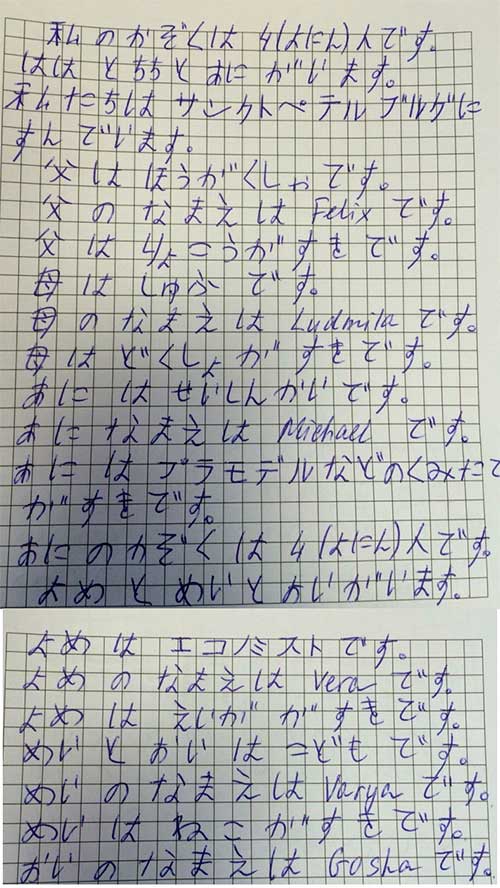 私のかぞくは 4(よにん)人です。
ははとちちとあにがいます。
私たちはサンクトペテルブルグに
すんでいます。
父はほうがくしゃです。
父のなまえは Felix です。
父はりょこうがすきです。
母はしゅふです。
母のなまえは Ludmila です。
母はどくしょがすきです。
あにはせいしんかいです。
あになまえは Michael です。
あにはプラモデルなどのくみたて
がすきです。
あにのかぞくは 4(よにん)人です。
よめとめいとおいがいます。
よめはエコノミストです。
よめのなまえは Vera です。
よめはえいががすきです。
めいとおいはこどもです。
めいのなまえは Varya です。
めいはねこがすきです。
おいのなまえは Gosha です。